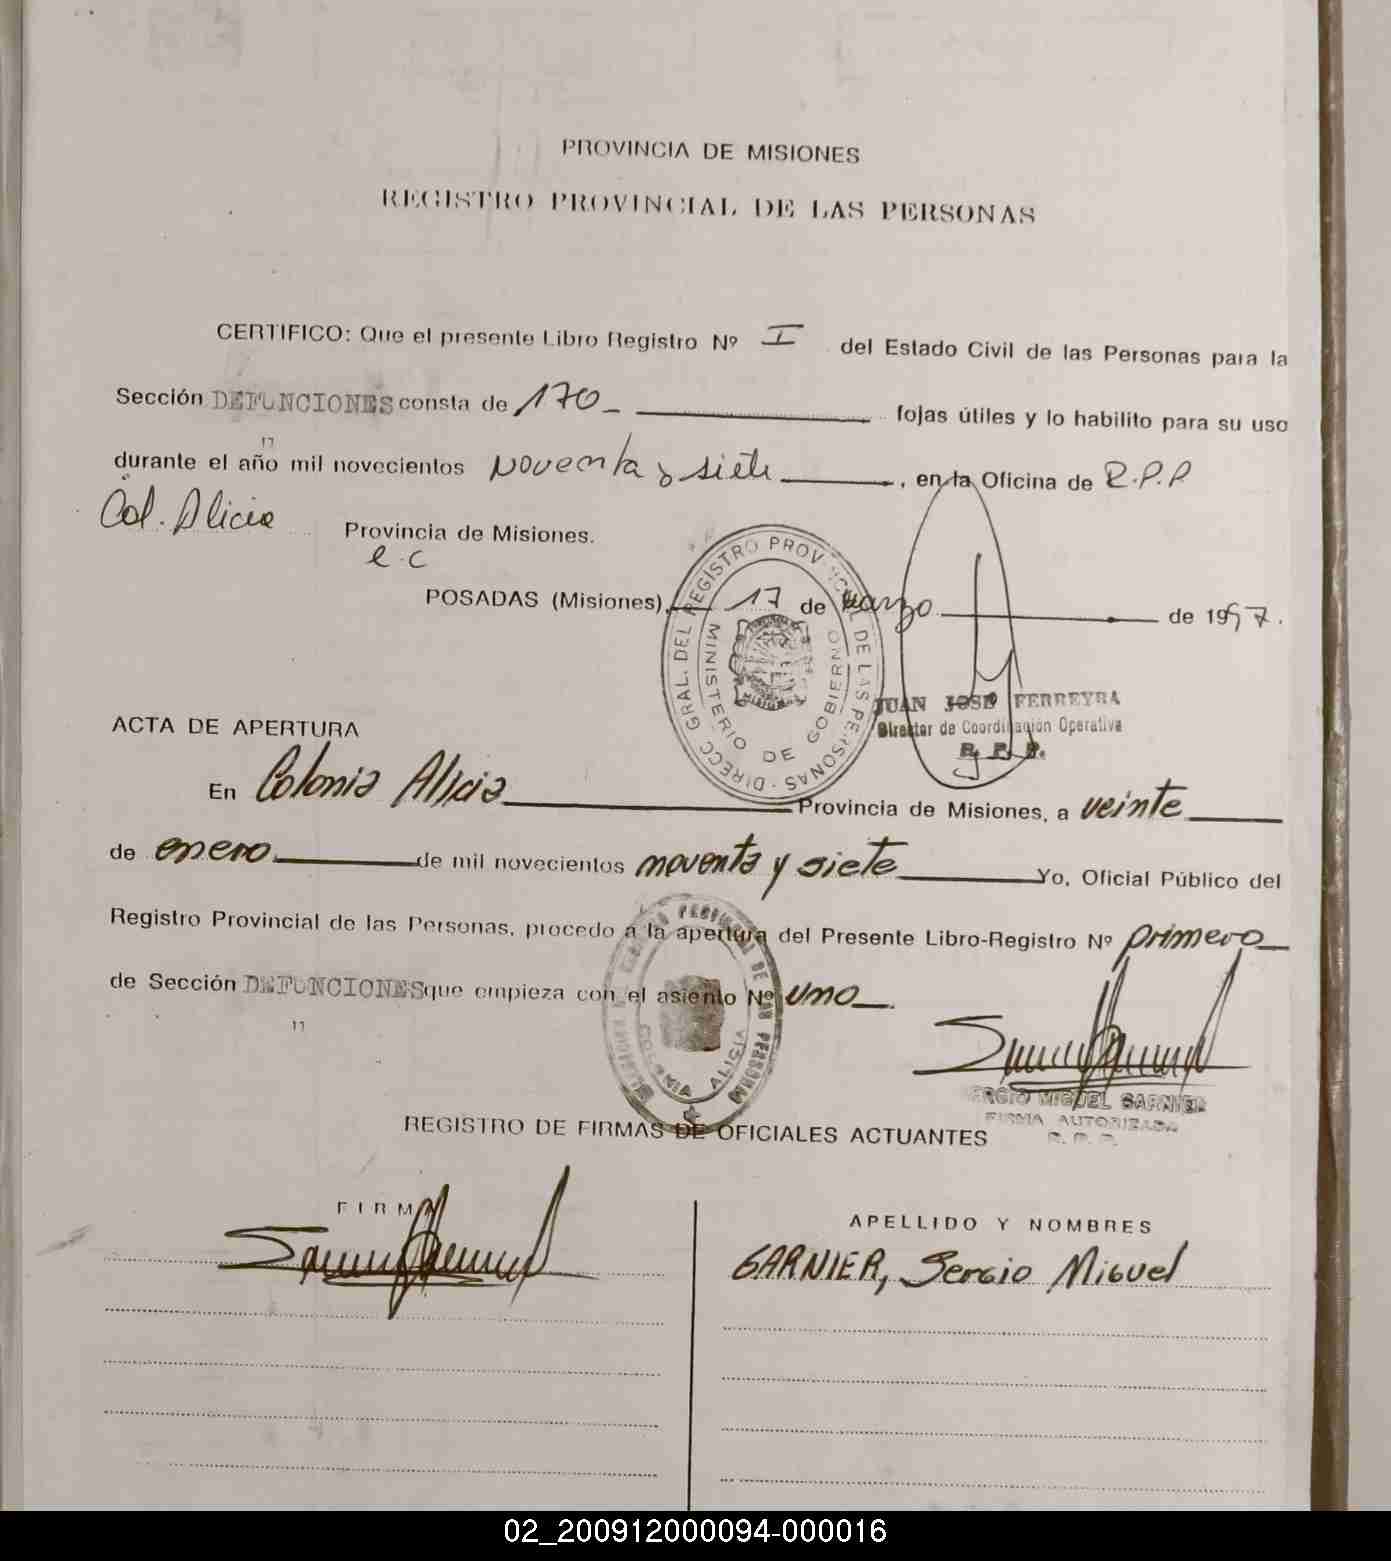 PROVINCIA DE MISIONES
REGISTRO PROVINCIAL DE LAS PERSONAS
CERTIFICO: Que el presente Libro Registro Nº I del Estado Civil de las Personas para la
Sección DEFUNCIONES consta de 170 fojas útiles y lo habilito para su uso
durante el año mil novecientos noventa y siete, en la Oficina de R.P.P
Col. Alicia Provincia de Misiones.
e.c
POSADAS (Misiones), 17 de Marzo de 1997.
DIRECC GRAL. DEL REGISTRO PROVINCIAL DE LAS PERSONAS
MINISTERIO DE GOBIERNO
JUAN JOSE FERREYRA
Director de Coordinación Operativa
R. P. P.
ACTA DE APERTURA
En Colonia Alicia Provincia de Misiones, a veinte
de enero de mil novecientos noventa y siete Yo, Oficial Público del
Registro Provincial de las Personas, procedo a la apertura del Presente Libro-Registro Nº primero
de Sección DEFUNCIONES que empieza con el asiento Nº uno.
COLONIA ALICIA
SERGIO MIGUEL GARNIER
FIRMA AUTORIZADA
R. P. P.
REGISTRO DE FIRMAS DE OFICIALES ACTUANTES
FIRMA
APELLIDO Y NOMBRES
GARNIER, Sergio Miguel
02_200912000094-000016